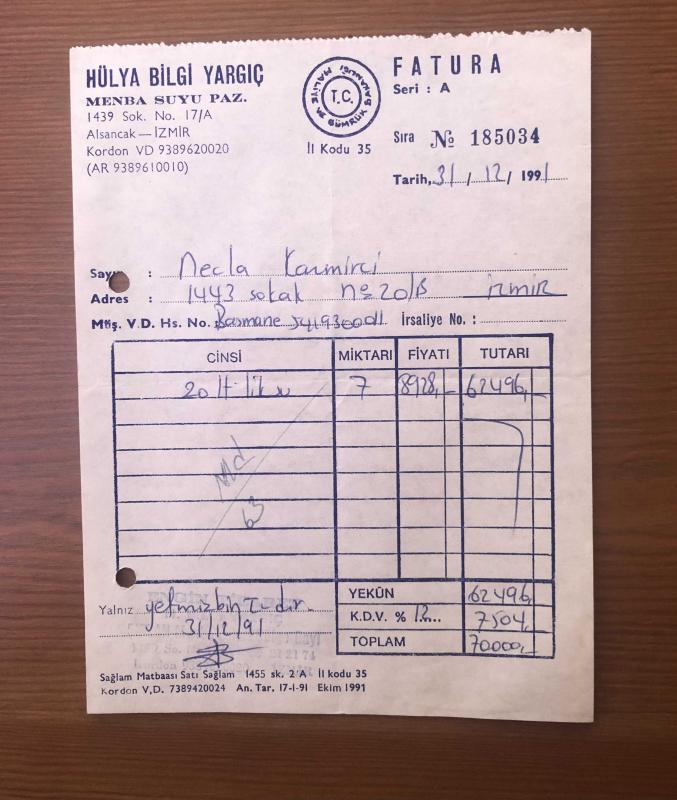 HÜLYA BİLGİ YARGIÇ
MENBA SUYU PAZ.
1439 Sok. No. 17/A
Alsancak — İZMİR
Kordon VD 9389620020
(AR 9389610010)
T.C.
MALİYE VE GÜMRÜK BAKANLIĞI
İl Kodu 35
FATURA
Seri : A
Sıra № 185034
Tarih, 31 / 12 / 1991
Sayın : Necla
Adres : 1443 sokak no 20/B İzmir
Müş. V.D. Hs. No. Basmane 5419300011 İrsaliye No. :
CİNSİ MİKTARI FİYATI TUTARI
20 lt 7 8928,- 62496,-
YEKÜN 62496,
K.D.V. % 12 7504,
TOPLAM 70000,-
Yalnız yetmişbin TL dır.
31/12/91
Sağlam Matbaası Satı Sağlam 1455 sk. 2/A İl kodu 35
Kordon V.D. 7389420024 An. Tar. 17-1-91 Ekim 1991